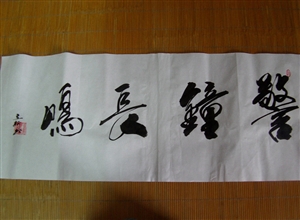 警鐘長鳴